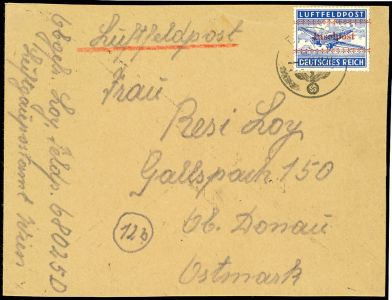 Luftfeldpost
LUFTFELDPOST
Inselpost
DEUTSCHES REICH
Frau
Resi Loy
Gallspach 150
Ob. Donau
Ostmark
12b
Loy, 68025D
Luftgaupostamt Wien